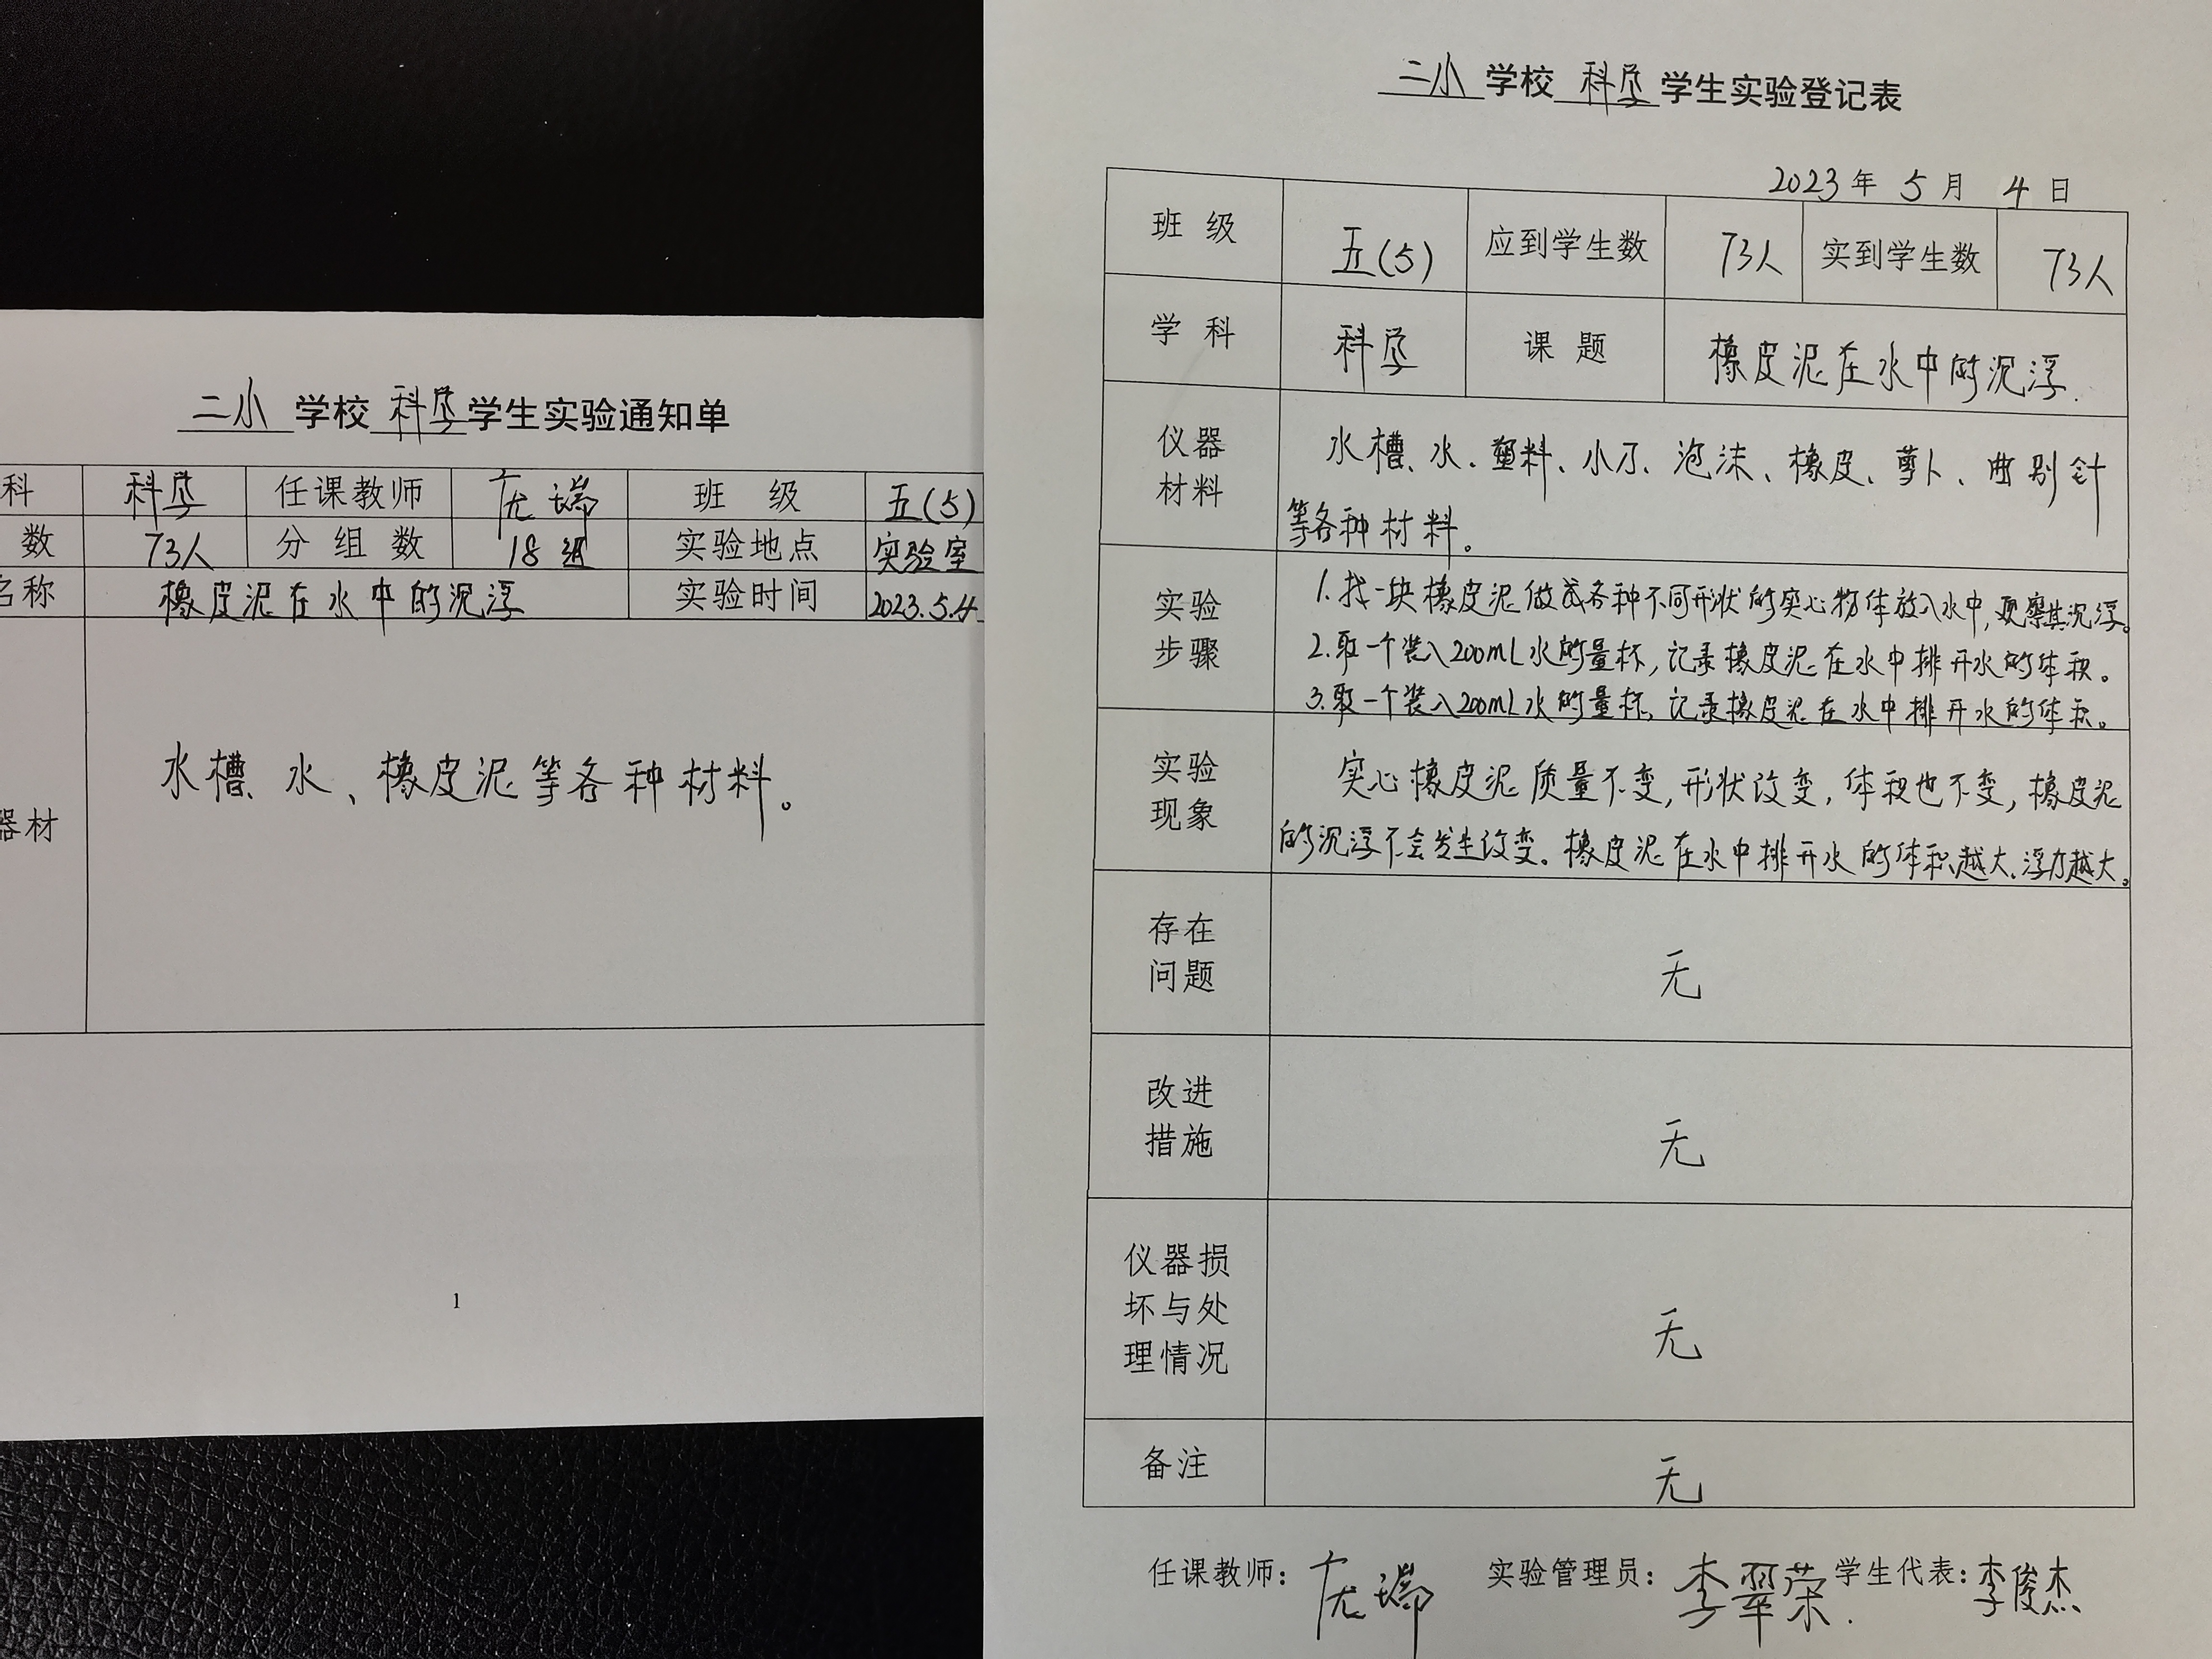 二小 学校 科学 学生实验通知单
科 科学 任课教师 庞瑞 班 级 五(5)
数 73人 分 组 数 18组 实验地点 实验室
名称 橡皮泥在水中的沉浮 实验时间 2023.5.4
器材 水槽、水、橡皮泥等各种材料。
1
二小 学校 科学 学生实验登记表
2023年 5月 4日
班 级 五(5) 应到学生数 73人 实到学生数 73人
学 科 科学 课 题 橡皮泥在水中的沉浮.
仪器
材料
水槽、水、塑料、小刀、泡沫、橡皮、萝卜、曲别针
等各种材料。
实验
步骤
1.找一块橡皮泥做成各种不同形状的实心物体放入水中,观察其沉浮。
2.取一个装入200mL水的量杯,记录橡皮泥在水中排开水的体积。
3.取一个装入200mL水的量杯,记录橡皮泥在水中排开水的体积。
实验
现象
实心橡皮泥质量不变,形状改变,体积也不变,橡皮泥
的沉浮不会发生改变。橡皮泥在水中排开水的体积越大、浮力越大。
存在
问题
无
改进
措施
无
仪器损
坏与处
理情况
无
备注 无
任课教师: 庞瑞 实验管理员: 李翠荣. 学生代表: 李俊杰